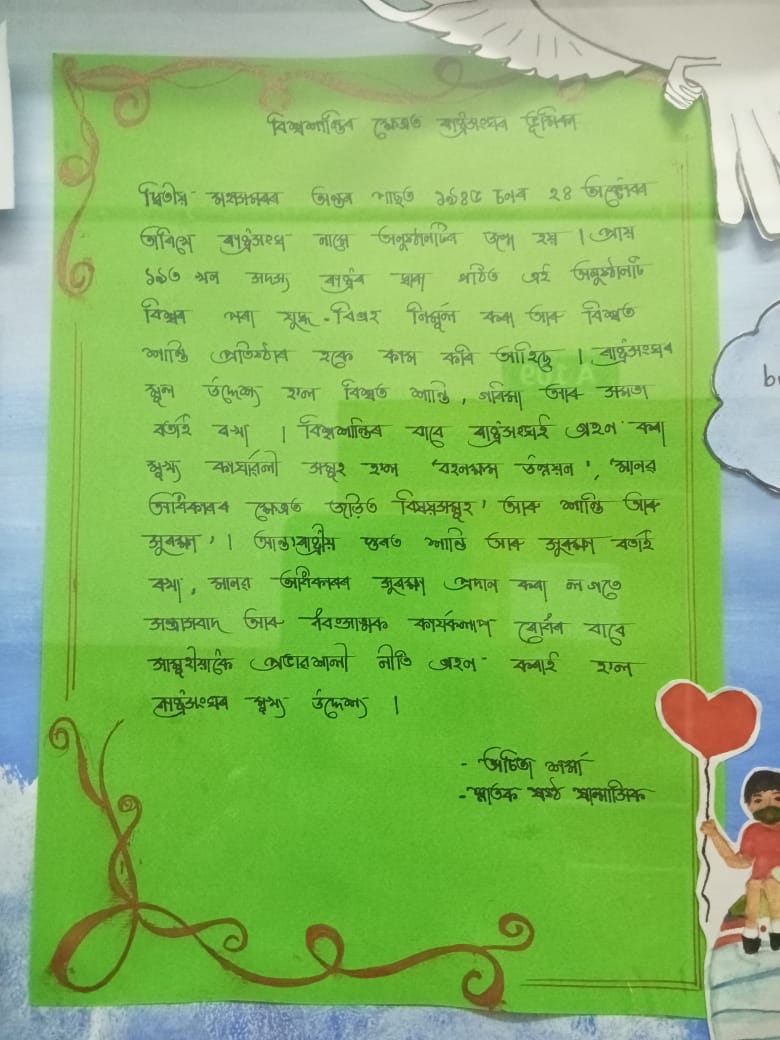 বিশ্বশান্তিৰ ক্ষেত্ৰত ৰাষ্ট্ৰসংঘৰ ভূমিকা
দ্বিতীয় মহাসমৰৰ অন্তৰ পাছত ১৯৪৫ চনৰ ২৪ অক্টোবৰৰ
তাৰিখে ৰাষ্ট্ৰসংঘ নামে অনুষ্ঠানটিৰ জন্ম হয় । প্ৰায়
১৯৩ খন সদস্য ৰাষ্ট্ৰৰ দ্বাৰা গঠিত এই অনুষ্ঠানটি
বিশ্বৰ পৰা যুদ্ধ-বিগ্ৰহ নিৰ্মূল কৰা আৰু বিশ্বত
শান্তি প্ৰতিষ্ঠাৰ হকে কাম কৰি আহিছে । ৰাষ্ট্ৰসংঘৰ
মূল উদ্দেশ্য হ'ল বিশ্বত শান্তি, গৰিমা আৰু সমতা
বৰ্তাই ৰখা । বিশ্বশান্তিৰ বাবে ৰাষ্ট্ৰসংঘই গ্ৰহণ কৰা
মুখ্য কাৰ্যাৱলী সমূহ হ'ল 'বহনক্ষম উন্নয়ন', 'মানৱ
অধিকাৰৰ ক্ষেত্ৰত জড়িত বিষয়সমূহ' আৰু শান্তি আৰু
সুৰক্ষা' । আন্তঃৰাষ্ট্ৰীয় স্তৰত শান্তি আৰু সুৰক্ষা বৰ্তাই
ৰখা, মানৱ অধিকাৰৰ সুৰক্ষা প্ৰদান কৰা লগতে
সন্ত্ৰাসবাদ আৰু ধ্বংসাত্মক কাৰ্যকলাপ ৰোধৰ বাবে
সামূহীয়াকৈ প্ৰভাৱশালী নীতি গ্ৰহণ কৰাই হ'ল
ৰাষ্ট্ৰসংঘৰ মুখ্য উদ্দেশ্য ।
- শৰ্মা
- স্নাতক ষষ্ঠ ষান্মাসিক